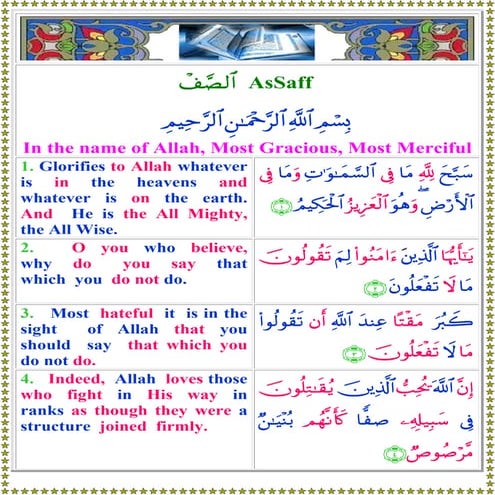 الصَّفْ AsSaff
بِسْمِ اللَّهِ الرَّحْمَٰنِ الرَّحِيمِ
In the name of Allah, Most Gracious, Most Merciful
1. Glorifies to Allah whatever
is in the heavens and
whatever is on the earth.
And He is the All Mighty,
the All Wise.
سَبَّحَ لِلَّهِ مَا فِى السَّمَٰوَٰتِ وَمَا فِى
الْأَرْضِ ۖ وَهُوَ الْعَزِيزُ الْحَكِيمُ ﴿١﴾
2. O you who believe,
why do you say that
which you do not do.
يَٰٓأَيُّهَا الَّذِينَ ءَامَنُوا۟ لِمَ تَقُولُونَ
مَا لَا تَفْعَلُونَ ﴿٢﴾
3. Most hateful it is in the
sight of Allah that you
should say that which you
do not do.
كَبُرَ مَقْتًا عِندَ اللَّهِ أَن تَقُولُوا۟
مَا لَا تَفْعَلُونَ ﴿٣﴾
4. Indeed, Allah loves those
who fight in His way in
ranks as though they were a
structure joined firmly.
إِنَّ اللَّهَ يُحِبُّ الَّذِينَ يُقَٰتِلُونَ
فِى سَبِيلِهِۦ صَفًّا كَأَنَّهُم بُنْيَٰنٌ
مَّرْصُوصٌ ﴿٤﴾